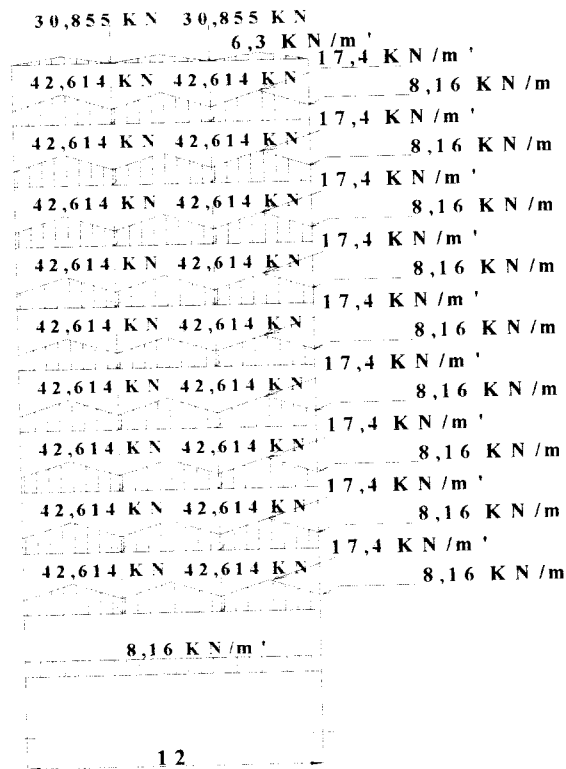 30,855 KN 30,855 KN
6,3 KN/m'
17,4 KN/m'
42,614 KN 42,614 KN
8,16 KN/m
17,4 KN/m'
42,614 KN 42,614 KN
8,16 KN/m
17,4 KN/m'
42,614 KN 42,614 KN
8,16 KN/m
17,4 KN/m'
42,614 KN 42,614 KN
8,16 KN/m
17,4 KN/m'
42,614 KN 42,614 KN
8,16 KN/m
17,4 KN/m'
42,614 KN 42,614 KN
8,16 KN/m
17,4 KN/m'
42,614 KN 42,614 KN
8,16 KN/m
17,4 KN/m'
42,614 KN 42,614 KN
8,16 KN/m
17,4 KN/m'
42,614 KN 42,614 KN
8,16 KN/m
8,16 KN/m'
12